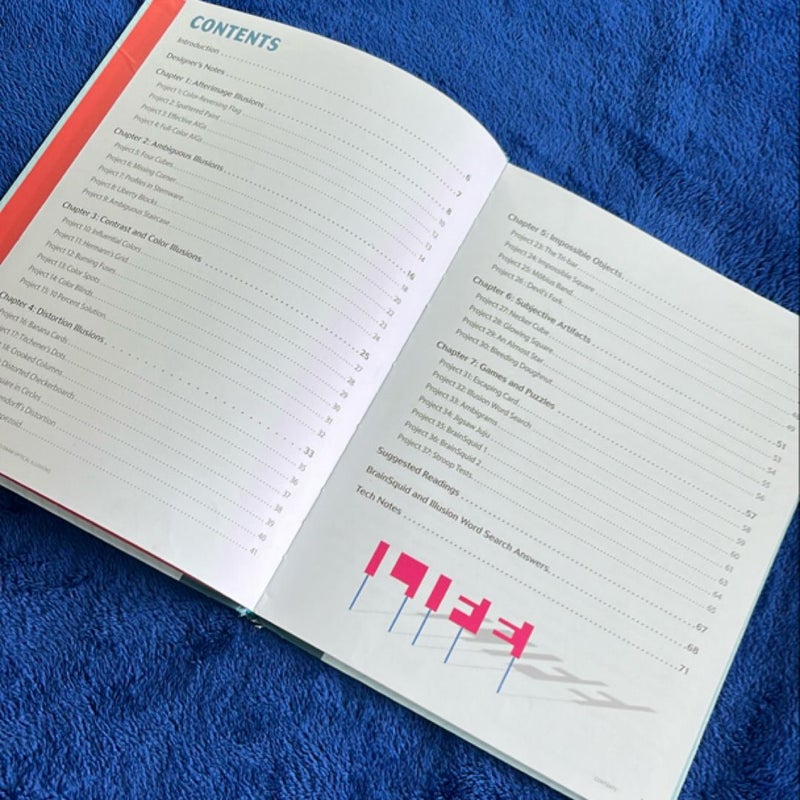 CONTENTS
Introduction 6
Designer's Notes 7
Chapter 1: Afterimage Illusions 8
Project 1: Color-Reversing Flag 10
Project 2: Spattered Paint 12
Project 3: Effective AIGs 13
Project 4: Full-Color AIGs 14
Chapter 2: Ambiguous Illusions 16
Project 5: Four Cubes 18
Project 6: Missing Corner 20
Project 7: Profiles in Stemware 22
Project 8: Liberty Blocks 23
Project 9: Ambiguous Staircase 24
Chapter 3: Contrast and Color Illusions 25
Project 10: Influential Colors 27
Project 11: Hermann's Grid 28
Project 12: Burning Fuses 29
Project 13: Color Spots 30
Project 14: Color Blinds 31
Project 15: 10 Percent Solution 32
Chapter 4: Distortion Illusions 33
Project 16: Banana Cards 35
17: Titchener's Dots 36
18: Crooked Columns 37
Distorted Checkerboards 38
in Circles 39
Distortion 40
41
Chapter 5: Impossible Objects
Project 23: The Tri-bar
Project 24: Impossible Square
Project 25: Möbius Band 48
Project 26: Devil's Fork 49
Chapter 6: Subjective Artifacts 51
Project 27: Necker Cube 53
Project 28: Glowing Square 54
Project 29: An Almost Star 55
Project 30: Bleeding Doughnut 56
Chapter 7: Games and Puzzles 57
Project 31: Escaping Card 58
Project 32: Illusion Word Search 59
Project 33: Ambigrams 60
Project 34: Jigsaw Juju 61
Project 35: BrainSquid 1 63
Project 36: BrainSquid 2 64
Project 37: Stroop Tests 65
Suggested Readings 67
BrainSquid and Illusion Word Search Answers 68
Tech Notes 71
CONTENTS